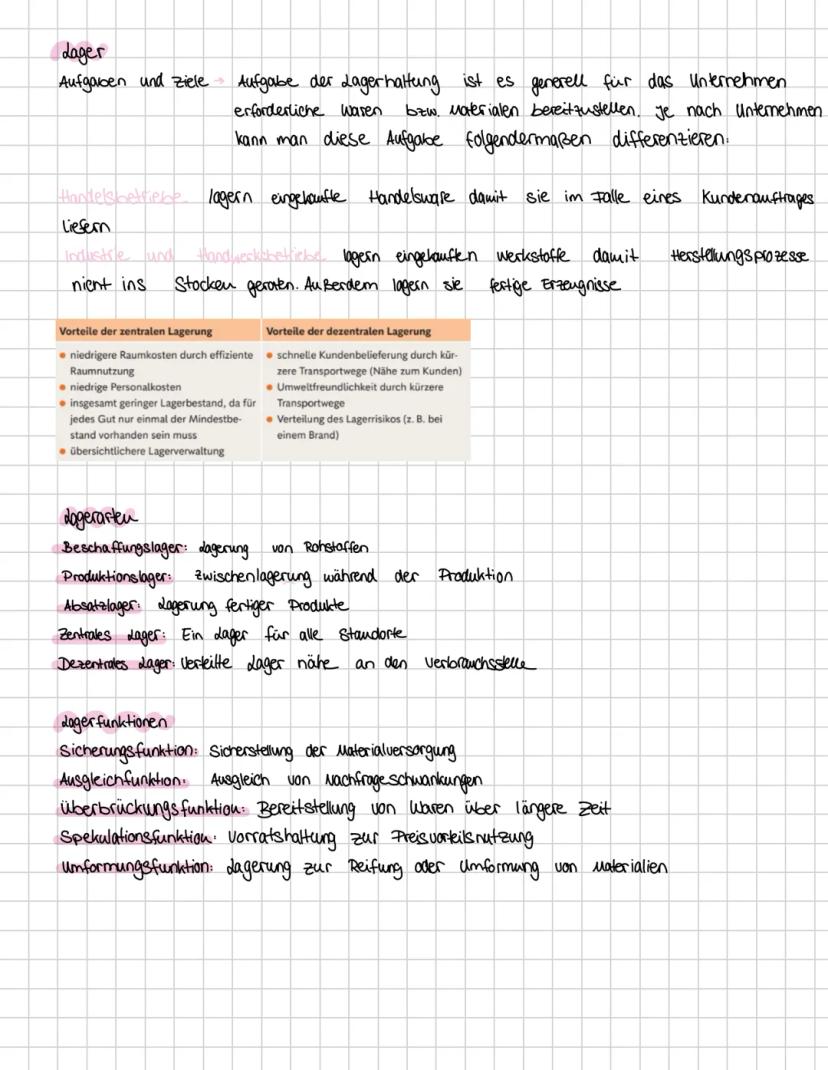 Lager
Aufgaben und Ziele → Aufgabe der Lagerhaltung ist es generell für das Unternehmen
erforderliche Waren bzw. Materialen bereitzustellen. Je nach Unternehmen
kann man diese Aufgabe folgendermaßen differenzieren:
Handelsbetriebe lagern eingekaufte Handelsware damit sie im Falle eines Kundenauftrages
liefern
Industrie und Handwerksbetriebe lagern eingekauften Werkstoffe damit Herstellungsprozesse
nicht ins Stocken geraten. Außerdem lagern sie fertige Erzeugnisse
Vorteile der zentralen Lagerung
• niedrigere Raumkosten durch effiziente
Raumnutzung
• niedrige Personalkosten
• insgesamt geringer Lagerbestand, da für
jedes Gut nur einmal der Mindestbe-
stand vorhanden sein muss
• übersichtlichere Lagerverwaltung
Vorteile der dezentralen Lagerung
• schnelle Kundenbelieferung durch kür-
zere Transportwege (Nähe zum Kunden)
• Umweltfreundlichkeit durch kürzere
Transportwege
• Verteilung des Lagerrisikos (z. B. bei
einem Brand)
Lagerarten
Beschaffungslager: Lagerung von Rohstoffen
Produktionslager: Zwischenlagerung während der Produktion
Absatzlager: Lagerung fertiger Produkte
Zentrales Lager: Ein Lager für alle Standorte
Dezentrales Lager: Verteilte Lager nähe an den Verbrauchsstelle
Lagerfunktionen
Sicherungsfunktion: Sicherstellung der Materialversorgung
Ausgleichfunktion: Ausgleich von Nachfrageschwankungen
Überbrückungsfunktion: Bereitstellung von Waren über längere Zeit
Spekulationsfunktion: Vorratshaltung zur Preisvorteilsnutzung
Umformungsfunktion: Lagerung zur Reifung oder Umformung von Materialien